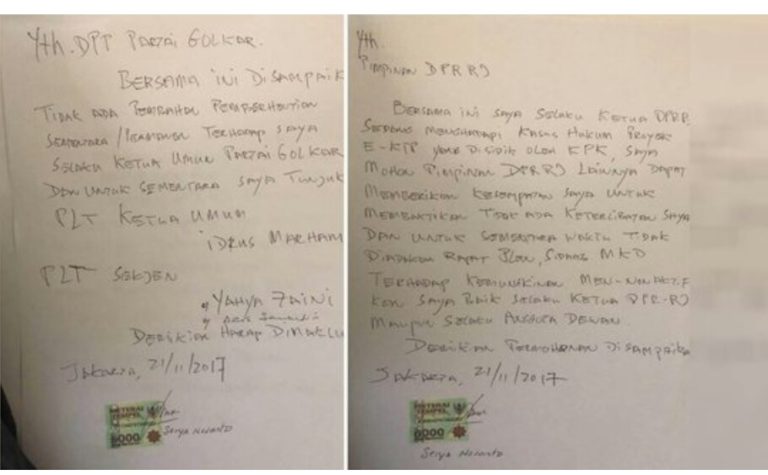 Yth. DPP PARTAI GOLKAR.
BERSAMA INI DISAMPAIK
TIDAK ADA PEMBAHAN PEMBERHENTIAN
SEMENTARA/PERMANEN TERHADAP SAYA
SELAKU KETUA UMUM PARTAI GOLKAR
DAN UNTUK SEMENTARA SAYA TUNJUK
PLT KETUA UMUM
IDRUS MARHAM
PLT SEKJEN
YAHYA ZAINI
DEMIKIAN HARAP DIMAKLU
JAKARTA, 21/11/2017
METERAI TEMPEL
6000
Setya Novanto
Yth.
PIMPINAN DPR RI
BERSAMA INI SAYA SELAKU KETUA DPR
SEDANG MENGHADAPI KASUS HUKUM PROYEK
E-KTP YANG DISIDIK OLEH KPK, SAYA
MOHON PIMPINAN DPR RI LAINNYA DAPAT
MEMBERIKAN KESEMPATAN SAYA UNTUK
MEMBUKTIKAN TIDAK ADA KETERLIBATAN SAYA
DAN UNTUK SEMENTARA WAKTU TIDAK
DIADAKAN RAPAT PLENO, SIDANG MKD
TERHADAP KEMUNGKINAN MEN-NONAKTIF
KAN SAYA BAIK SELAKU KETUA DPR-RI
MAUPUN SELAKU ANGGOTA DEWAN.
DEMIKIAN PERMOHONAN DISAMPAIKA
JAKARTA, 21/11/2017
METERAI TEMPEL
6000
Setya Novanto